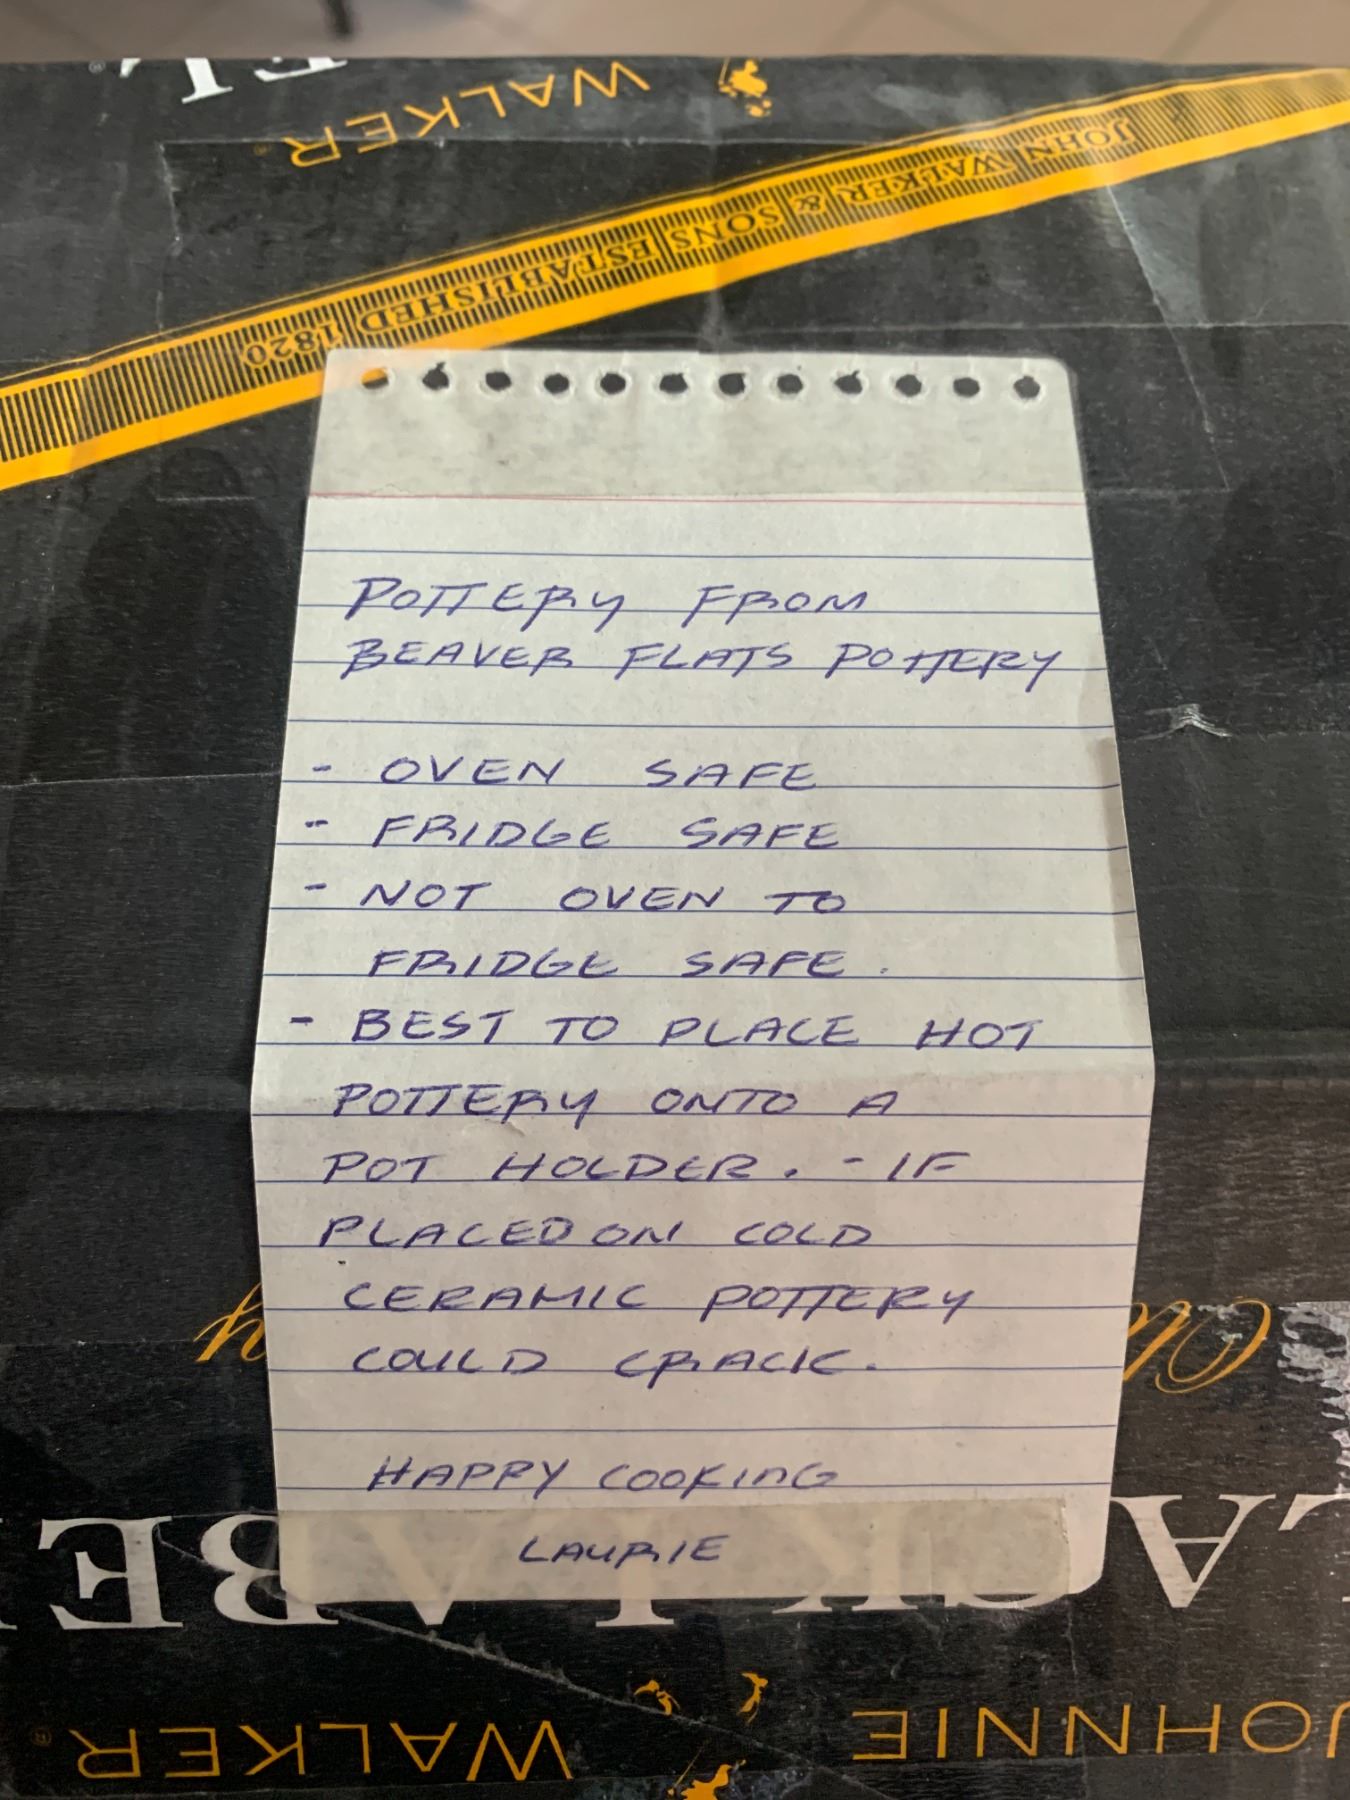 EL
WALKER
JOHN WALKER & SONS ESTABLISHED 1820
POTTERY FROM
BEAVER FLATS POTTERY
- OVEN SAFE
- FRIDGE SAFE
- NOT OVEN TO
FRIDGE SAFE.
- BEST TO PLACE HOT
POTTERY ONTO A
POT HOLDER. - IF
PLACED ON COLD
CERAMIC POTTERY
COULD CRACK.
HAPPY COOKING
LAURIE
JOHNNIE WALKER